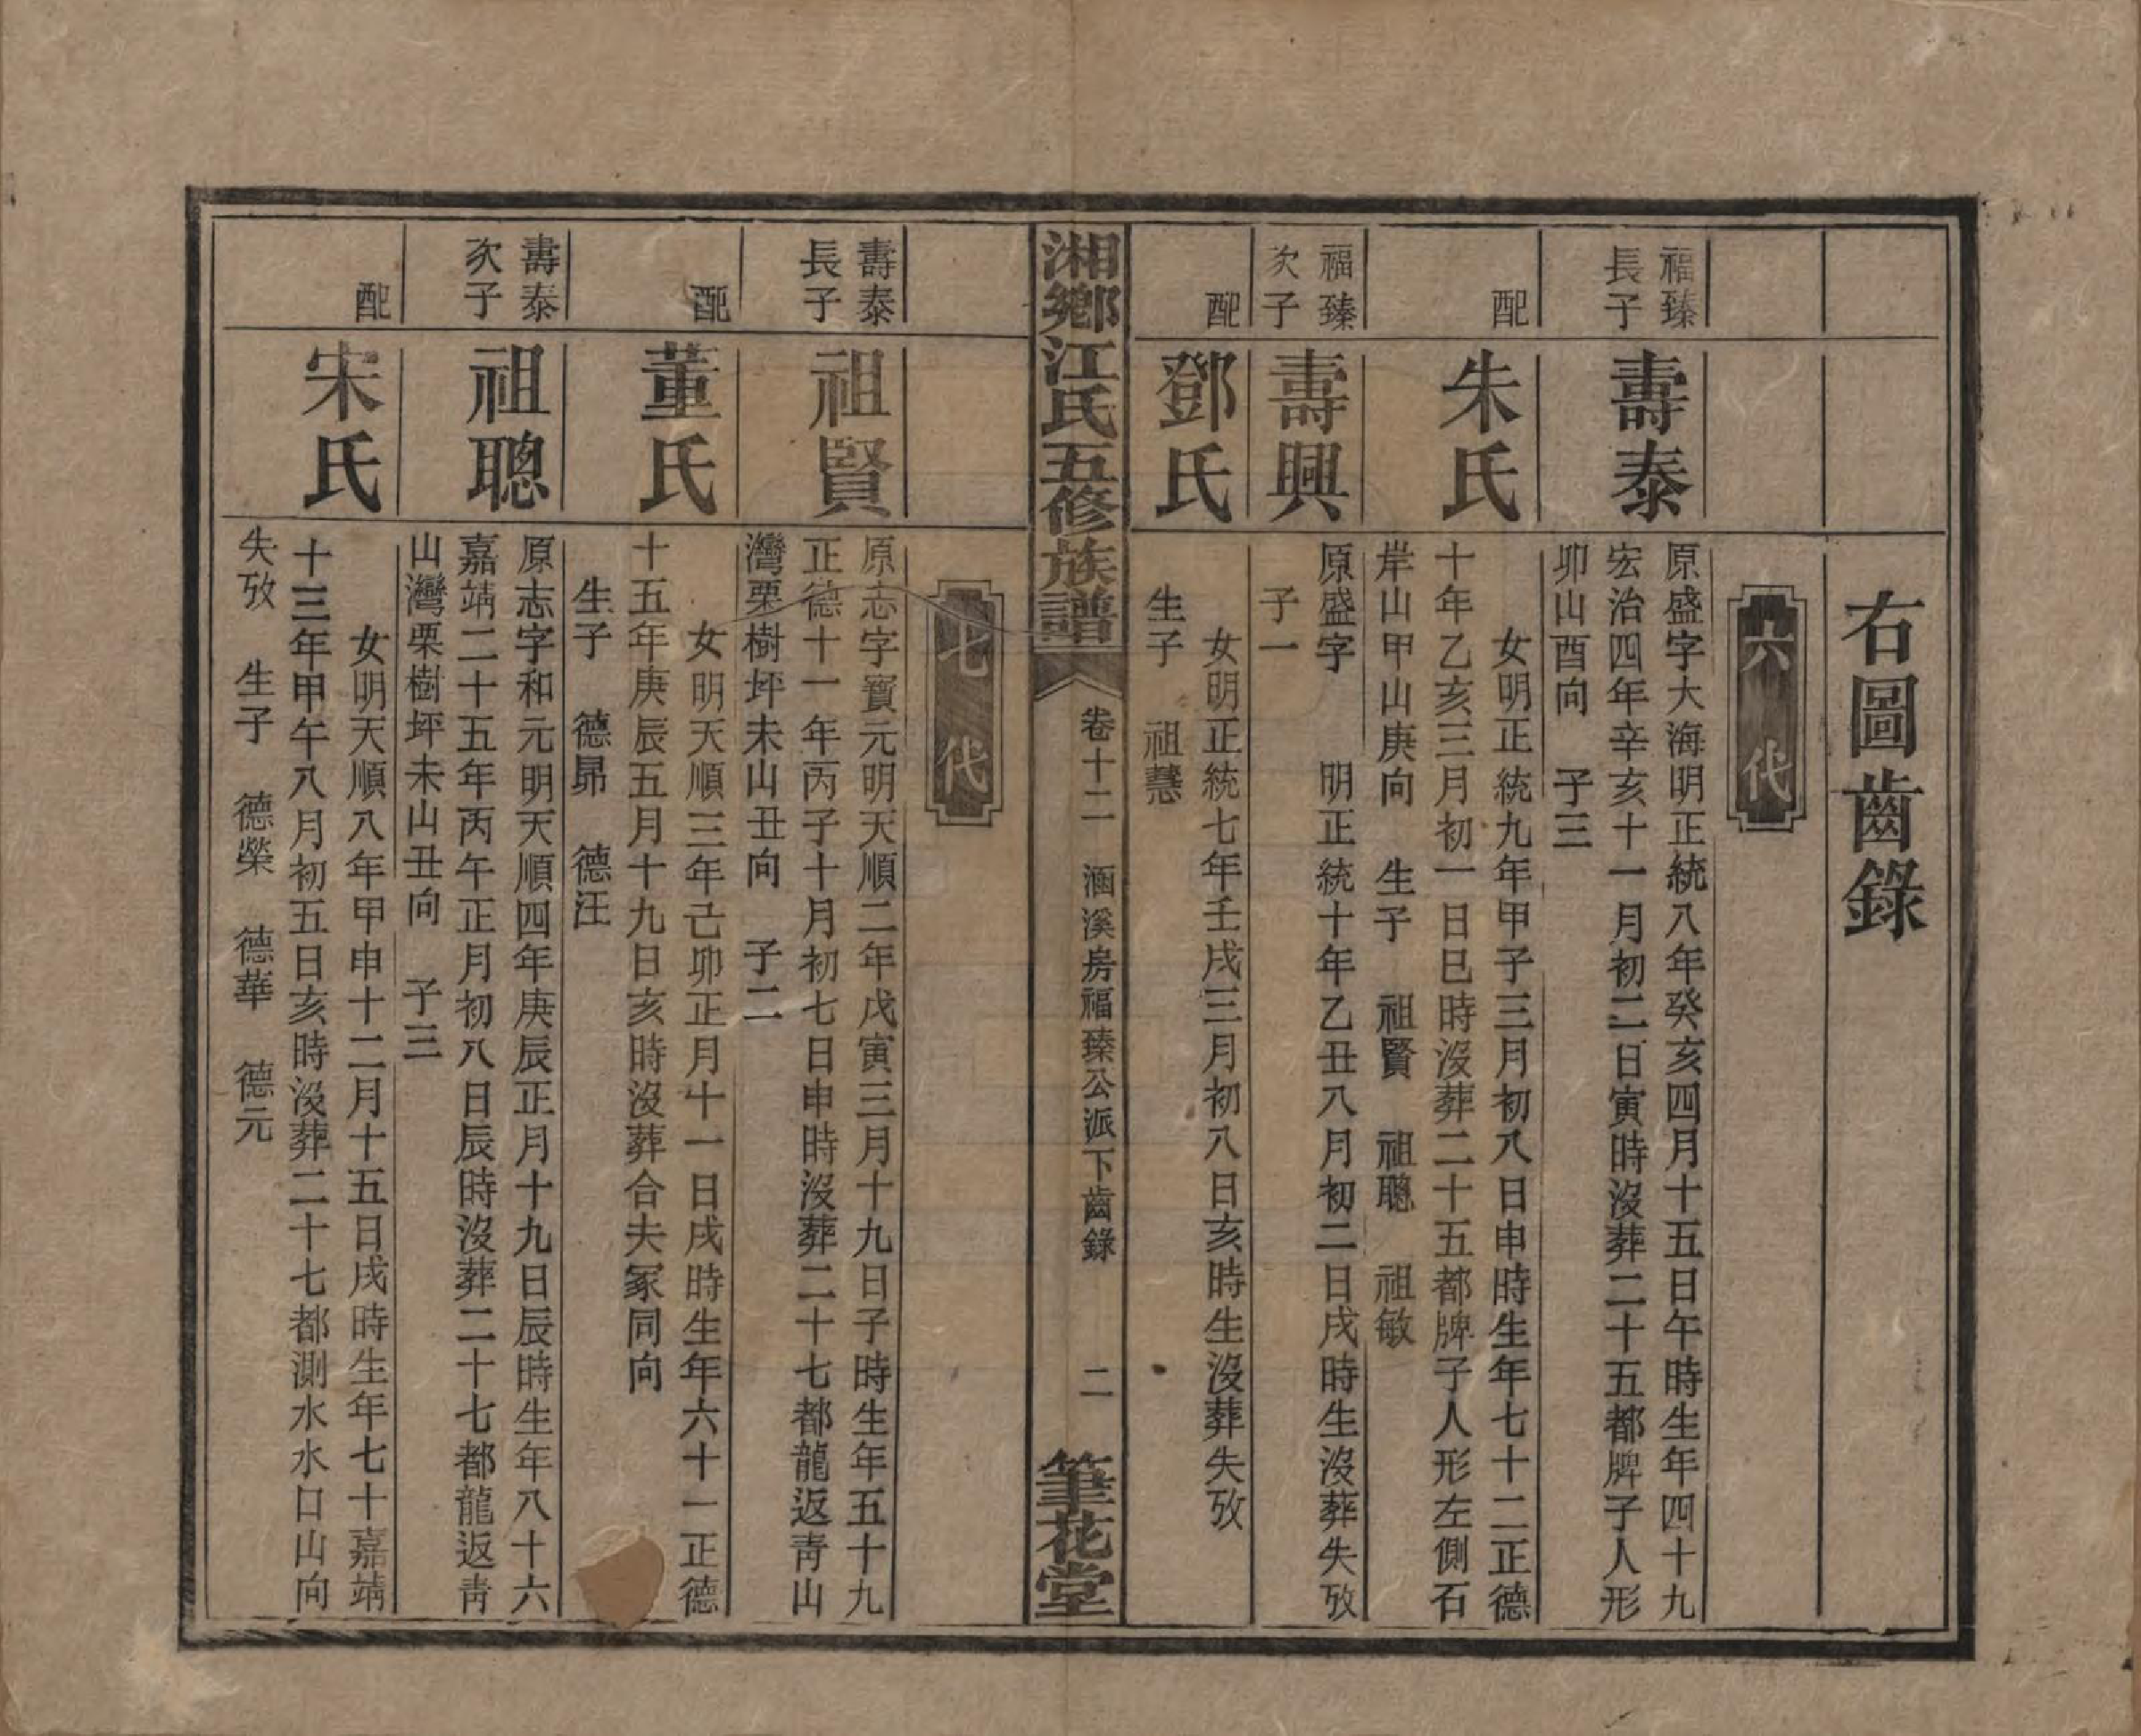 右圖齒錄
六代
福臻
長子
壽泰
原盛字大海明正統八年癸亥四月十五日午時生年四十九
宏治四年辛亥十一月初二日寅時沒葬二十五都牌子人形
卯山酉向 子三
配
朱氏
女明正統九年甲子三月初八日申時生年七十二正德
十年乙亥三月初一日巳時沒葬二十五都牌子人形左側石
岸山甲山庚向 生子 祖賢 祖聰 祖敏
福臻
次子
壽興
原盛字 明正統十年乙丑八月初二日戌時生沒葬失攷
子一
配
鄧氏
女明正統七年壬戌三月初八日亥時生沒葬失攷
生子 祖慧
湘鄉江氏五修族譜 卷十二 涵溪房福臻公派下齒錄 二 筆花堂
七代
壽泰
長子
祖賢
原志字寶元明天順二年戊寅三月十九日子時生年五十九
正德十一年丙子十月初七日申時沒葬二十七都龍返青山
灣栗樹坪未山丑向 子二
配
董氏
女明天順三年己卯正月十一日戌時生年六十一正德
十五年庚辰五月十九日亥時沒葬合夫冢同向
生子 德昴 德汪
壽泰
次子
祖聰
原志字和元明天順四年庚辰正月十九日辰時生年八十六
嘉靖二十五年丙午正月初八日辰時沒葬二十七都龍返青
山灣栗樹坪未山丑向 子三
配
宋氏
女明天順八年甲申十二月十五日戌時生年七十嘉靖
十三年甲午八月初五日亥時沒葬二十七都測水水口山向
失攷 生子 德榮 德華 德元